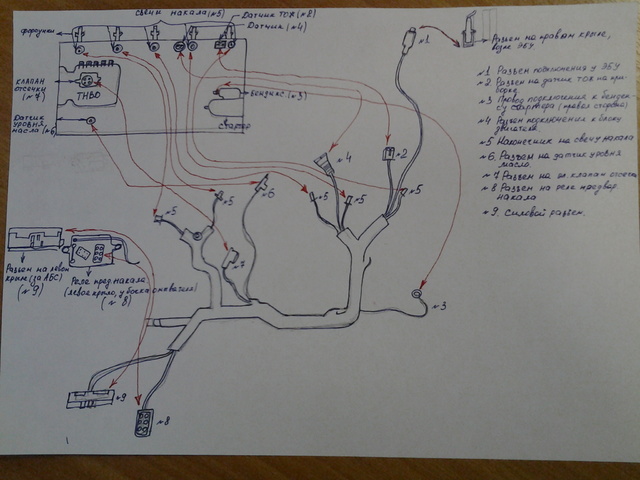 свечи накала (№5)
Датчик ТОЖ (№2)
Датчик (№4)
форсунки
КЛАПАН
отсечки
(№7)
ТНВД
Бендикс (№3)
стартер
Датчик
уровня
масла (№6)
№1
Разъем на правом крыле,
№1 Разъем подключения у ЭБУ
№2 Разъем на датчик ТОЖ на при-
борке
№3 Провод подключения к бендик-
су стартера (правая сторона)
№4 Разъем подключения к блоку
двигателя
№5 Наконечник на свечу накала
№6 Разъем на датчик уровня
масла
№7 Разъем на эл. клапан отсечки
№8 Разъем на реле предвар.
накала
№9. Силовой разъем.
№4
№2
№5
№5
№5
№5
№5
№6
№7
№3
Разъем на левом
крыле (за АБС)
(№9)
Реле пред. накала
(левое крыло, у бочка омывателя)
(№8)
№9
№8